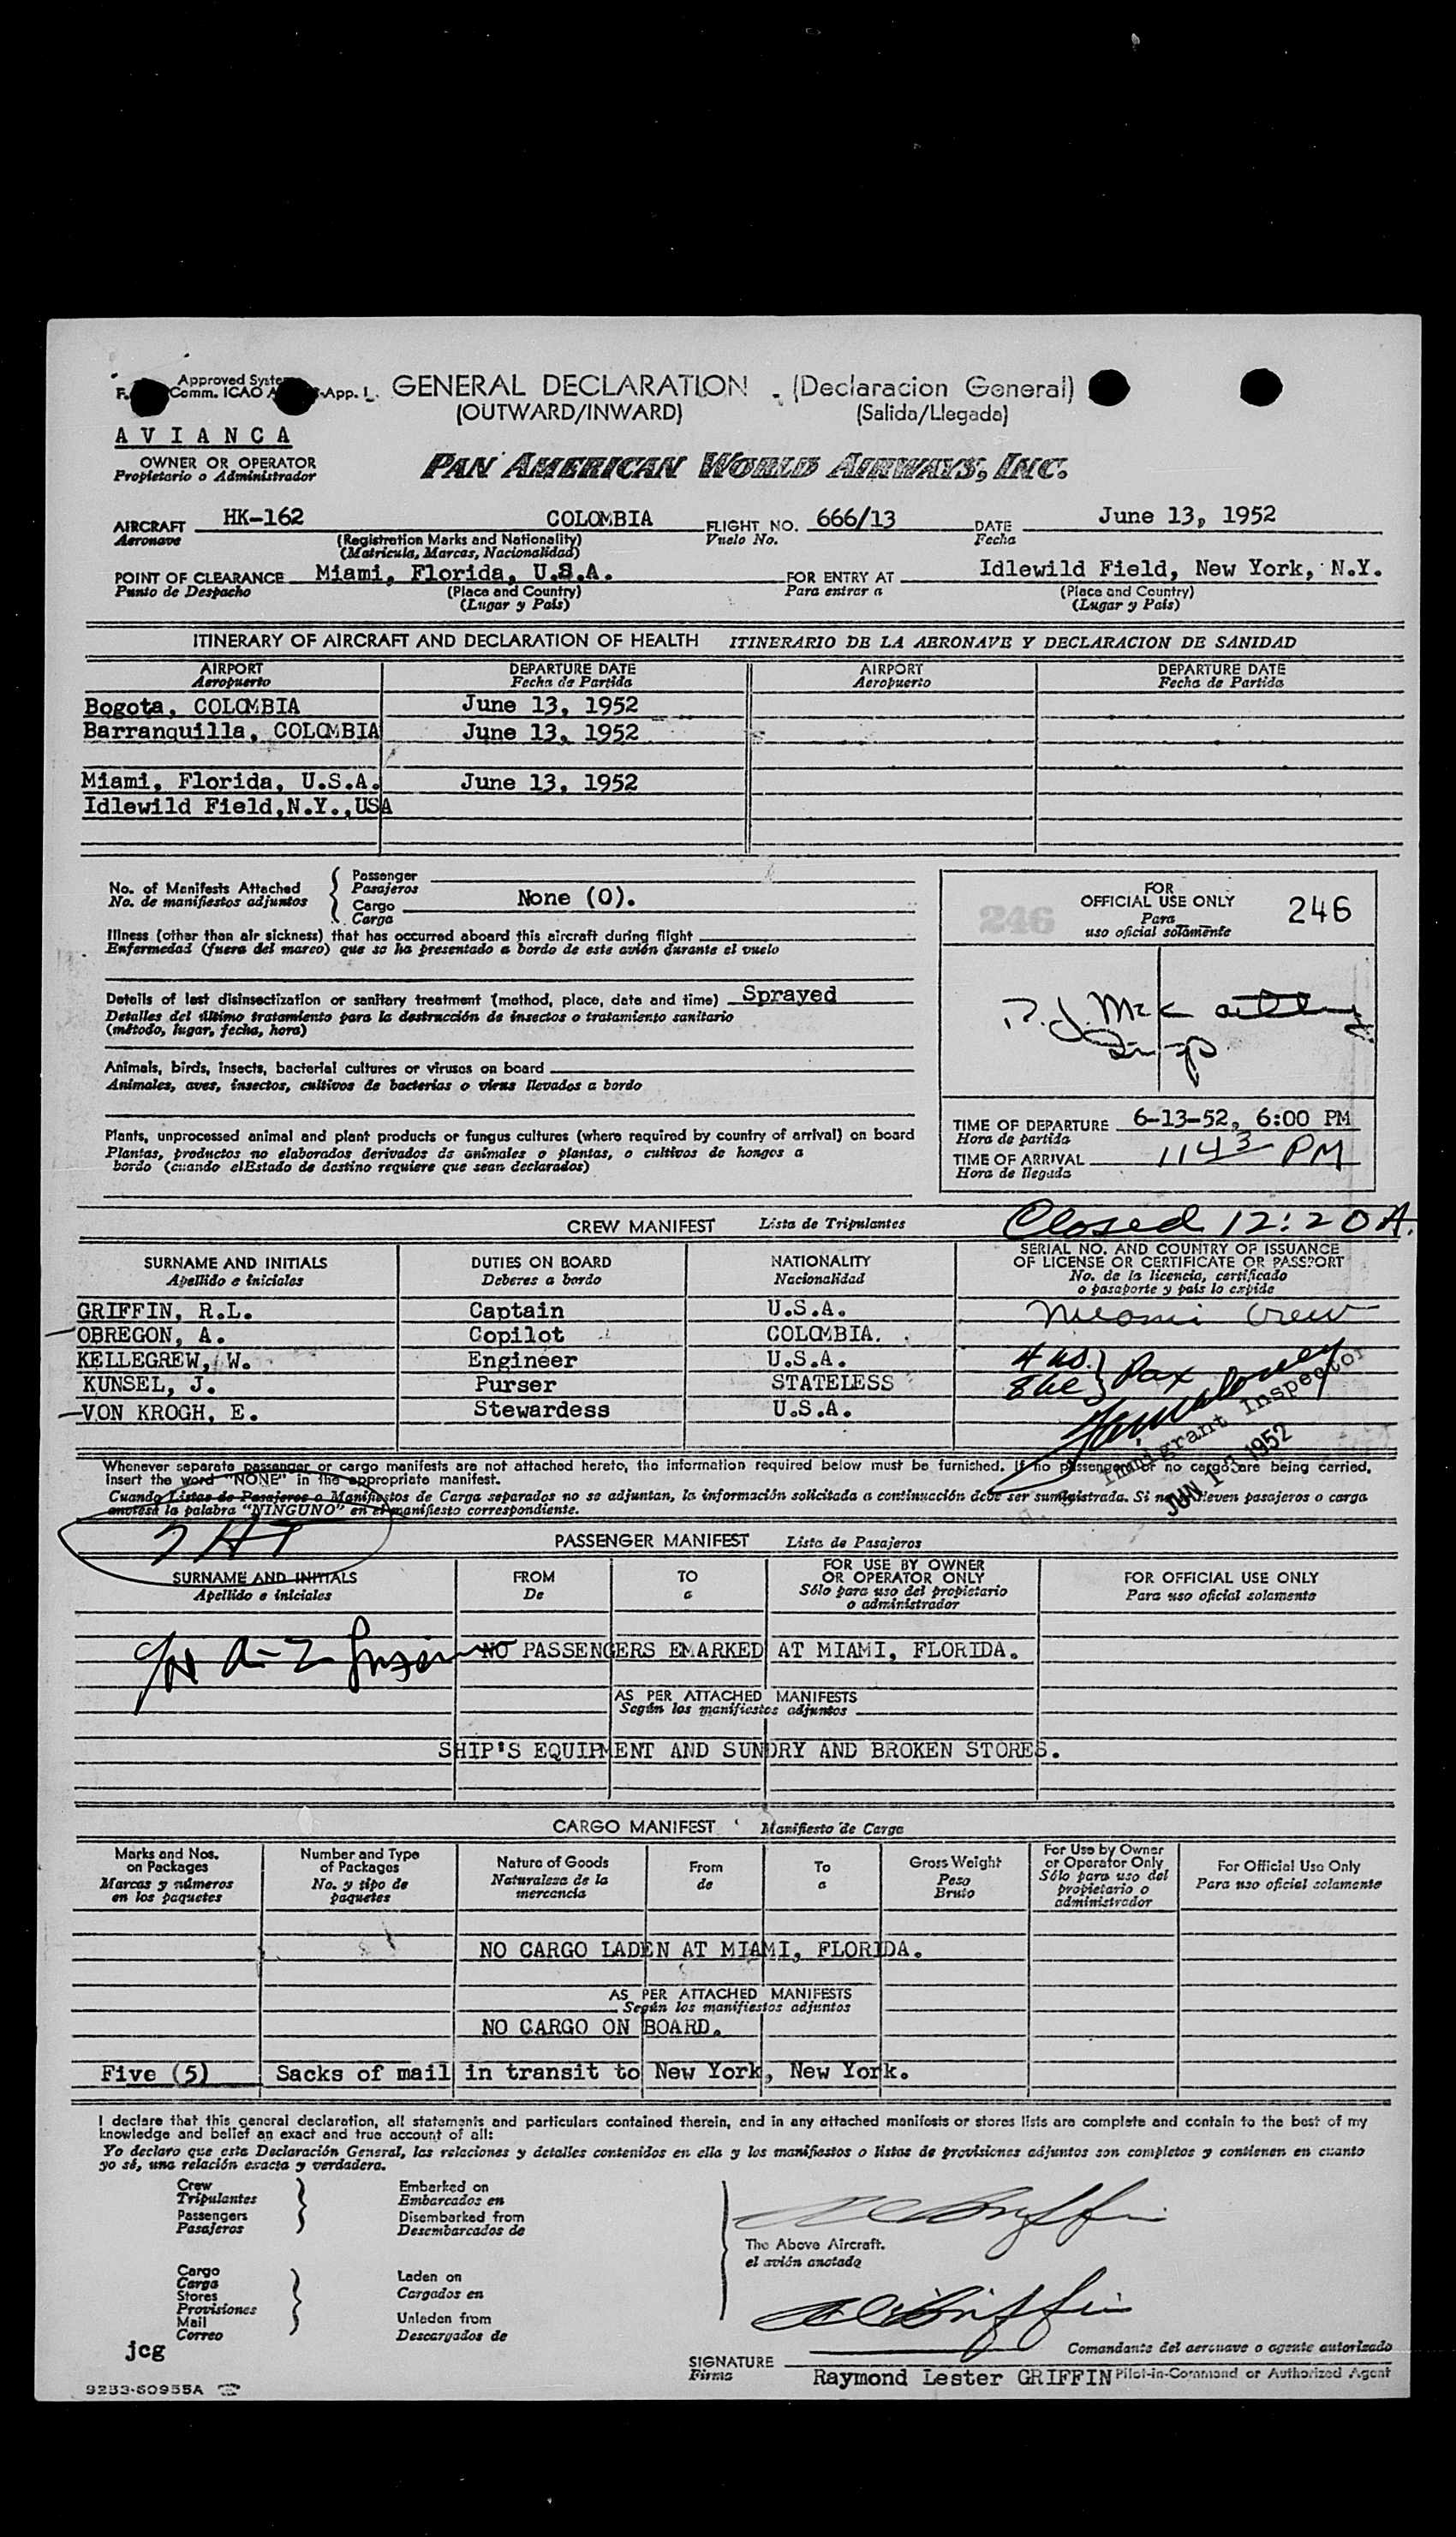 Approved System
F. Comm. ICAO A -App. 1.
GENERAL DECLARATION . (Declaracion General)
(OUTWARD/INWARD) (Salida/Llegada)
A V I A N C A
OWNER OR OPERATOR
Propietario o Administrador
PAN AMERICAN WORLD AIRWAYS, INC.
AIRCRAFT HK-162 COLOMBIA FLIGHT NO. 666/13 DATE June 13, 1952
Aeronave (Registration Marks and Nationality) Vuelo No. Fecha
(Matrícula, Marcas, Nacionalidad)
POINT OF CLEARANCE Miami, Florida, U.S.A. FOR ENTRY AT Idlewild Field, New York, N.Y.
Punto de Despacho (Place and Country) Para entrar a (Place and Country)
(Lugar y País) (Lugar y País)
ITINERARY OF AIRCRAFT AND DECLARATION OF HEALTH ITINERARIO DE LA AERONAVE Y DECLARACION DE SANIDAD
AIRPORT DEPARTURE DATE AIRPORT DEPARTURE DATE
Aeropuerto Fecha de Partida Aeropuerto Fecha de Partida
Bogota, COLOMBIA June 13, 1952
Barranquilla, COLOMBIA June 13, 1952
Miami, Florida, U.S.A. June 13, 1952
Idlewild Field,N.Y.,USA
No. of Manifests Attached
No. de manifiestos adjuntos
Passenger
Pasajeros
Cargo
Carga
None (0).
Illness (other than air sickness) that has occurred aboard this aircraft during flight
Enfermedad (fuera del mareo) que se ha presentado a bordo de este avión durante el vuelo
Details of last disinsectization or sanitary treatment (method, place, date and time) Sprayed
Detalles del último tratamiento para la destrucción de insectos o tratamiento sanitario
(método, lugar, fecha, hora)
Animals, birds, insects, bacterial cultures or viruses on board
Animales, aves, insectos, cultivos de bacterias o virus llevados a bordo
Plants, unprocessed animal and plant products or fungus cultures (where required by country of arrival) on board
Plantas, productos no elaborados derivados de animales o plantas, o cultivos de hongos a
bordo (cuando elEstado de destino requiere que sean declarados)
246
FOR
OFFICIAL USE ONLY
Para
uso oficial solamente
246
TIME OF DEPARTURE 6-13-52, 6:00 PM
Hora de partida
TIME OF ARRIVAL 1143 PM
Hora de llegada
Closed 12:20 A.
CREW MANIFEST Lista de Tripulantes
SURNAME AND INITIALS DUTIES ON BOARD NATIONALITY SERIAL NO. AND COUNTRY OF ISSUANCE
Apellido e iniciales Deberes a bordo Nacionalidad OF LICENSE OR CERTIFICATE OR PASSPORT
No. de la licencia, certificado
o pasaporte y país lo expide
GRIFFIN, R.L. Captain U.S.A. Miami Crew
OBREGON, A. Copilot COLOMBIA.
KELLEGREW, W. Engineer U.S.A. 4 us.
KUNSEL, J. Purser STATELESS Pax
VON KROGH, E. Stewardess U.S.A.
Immigrant Inspector
JUN 13 1952
Whenever separate passenger or cargo manifests are not attached hereto, the information required below must be furnished. If no passengers or no cargo are being carried,
insert the word "NONE" in the appropriate manifest.
Cuando Listas de Pasajeros o Manifiestos de Carga separados no se adjuntan, la información solicitada a continuación debe ser suministrada. Si no se lleven pasajeros o carga
anótese la palabra "NINGUNO" en el manifiesto correspondiente.
PASSENGER MANIFEST Lista de Pasajeros
SURNAME AND INITIALS FROM TO FOR USE BY OWNER FOR OFFICIAL USE ONLY
Apellido e iniciales De a OR OPERATOR ONLY Para uso oficial solamente
Sólo para uso del propietario
o administrador
NO PASSENGERS EMARKED AT MIAMI, FLORIDA.
AS PER ATTACHED MANIFESTS
Según los manifiestos adjuntos
SHIP'S EQUIPMENT AND SUNDRY AND BROKEN STORES.
CARGO MANIFEST Manifiesto de Carga
Marks and Nos. Number and Type Nature of Goods From To Gross Weight For Use by Owner For Official Use Only
on Packages of Packages Naturaleza de la de a Peso or Operator Only Para uso oficial solamente
Marcas y números No. y tipo de mercancía Bruto Sólo para uso del
en los paquetes paquetes propietario o
administrador
NO CARGO LADEN AT MIAMI, FLORIDA.
AS PER ATTACHED MANIFESTS
Según los manifiestos adjuntos
NO CARGO ON BOARD.
Five (5) Sacks of mail in transit to New York, New York.
I declare that this general declaration, all statements and particulars contained therein, and in any attached manifests or stores lists are complete and contain to the best of my
knowledge and belief an exact and true account of all:
Yo declaro que esta Declaración General, las relaciones y detalles contenidos en ella y los manifiestos o listas de provisiones adjuntos son completos y contienen en cuanto
yo sé, una relación exacta y verdadera.
Crew
Tripulantes
Passengers
Pasajeros
Embarked on
Embarcados en
Disembarked from
Desembarcados de
Cargo
Carga
Stores
Provisiones
Mail
Correo
Laden on
Cargados en
Unladen from
Descargados de
The Above Aircraft.
el avión anotado
jcg
Comandante del aeronave o agente autorizado
SIGNATURE
Firma
Raymond Lester GRIFFIN Pilot-in-Command or Authorized Agent
9253-60955A